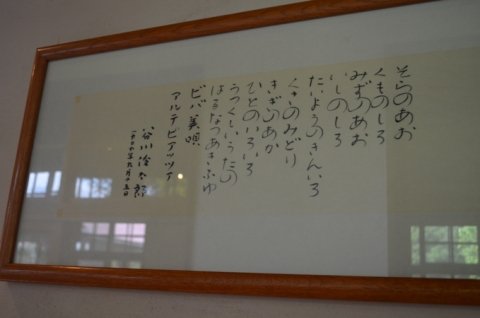 そらのあお
くものしろ
みずのあお
いしのしろ
たいようのきんいろ
くさのみどり
きぎのあか
ひとのいろいろ
うつくしいうたの
はるなつあきふゆ
ビバ 美唄
アルテピアッツア
谷川俊太郎